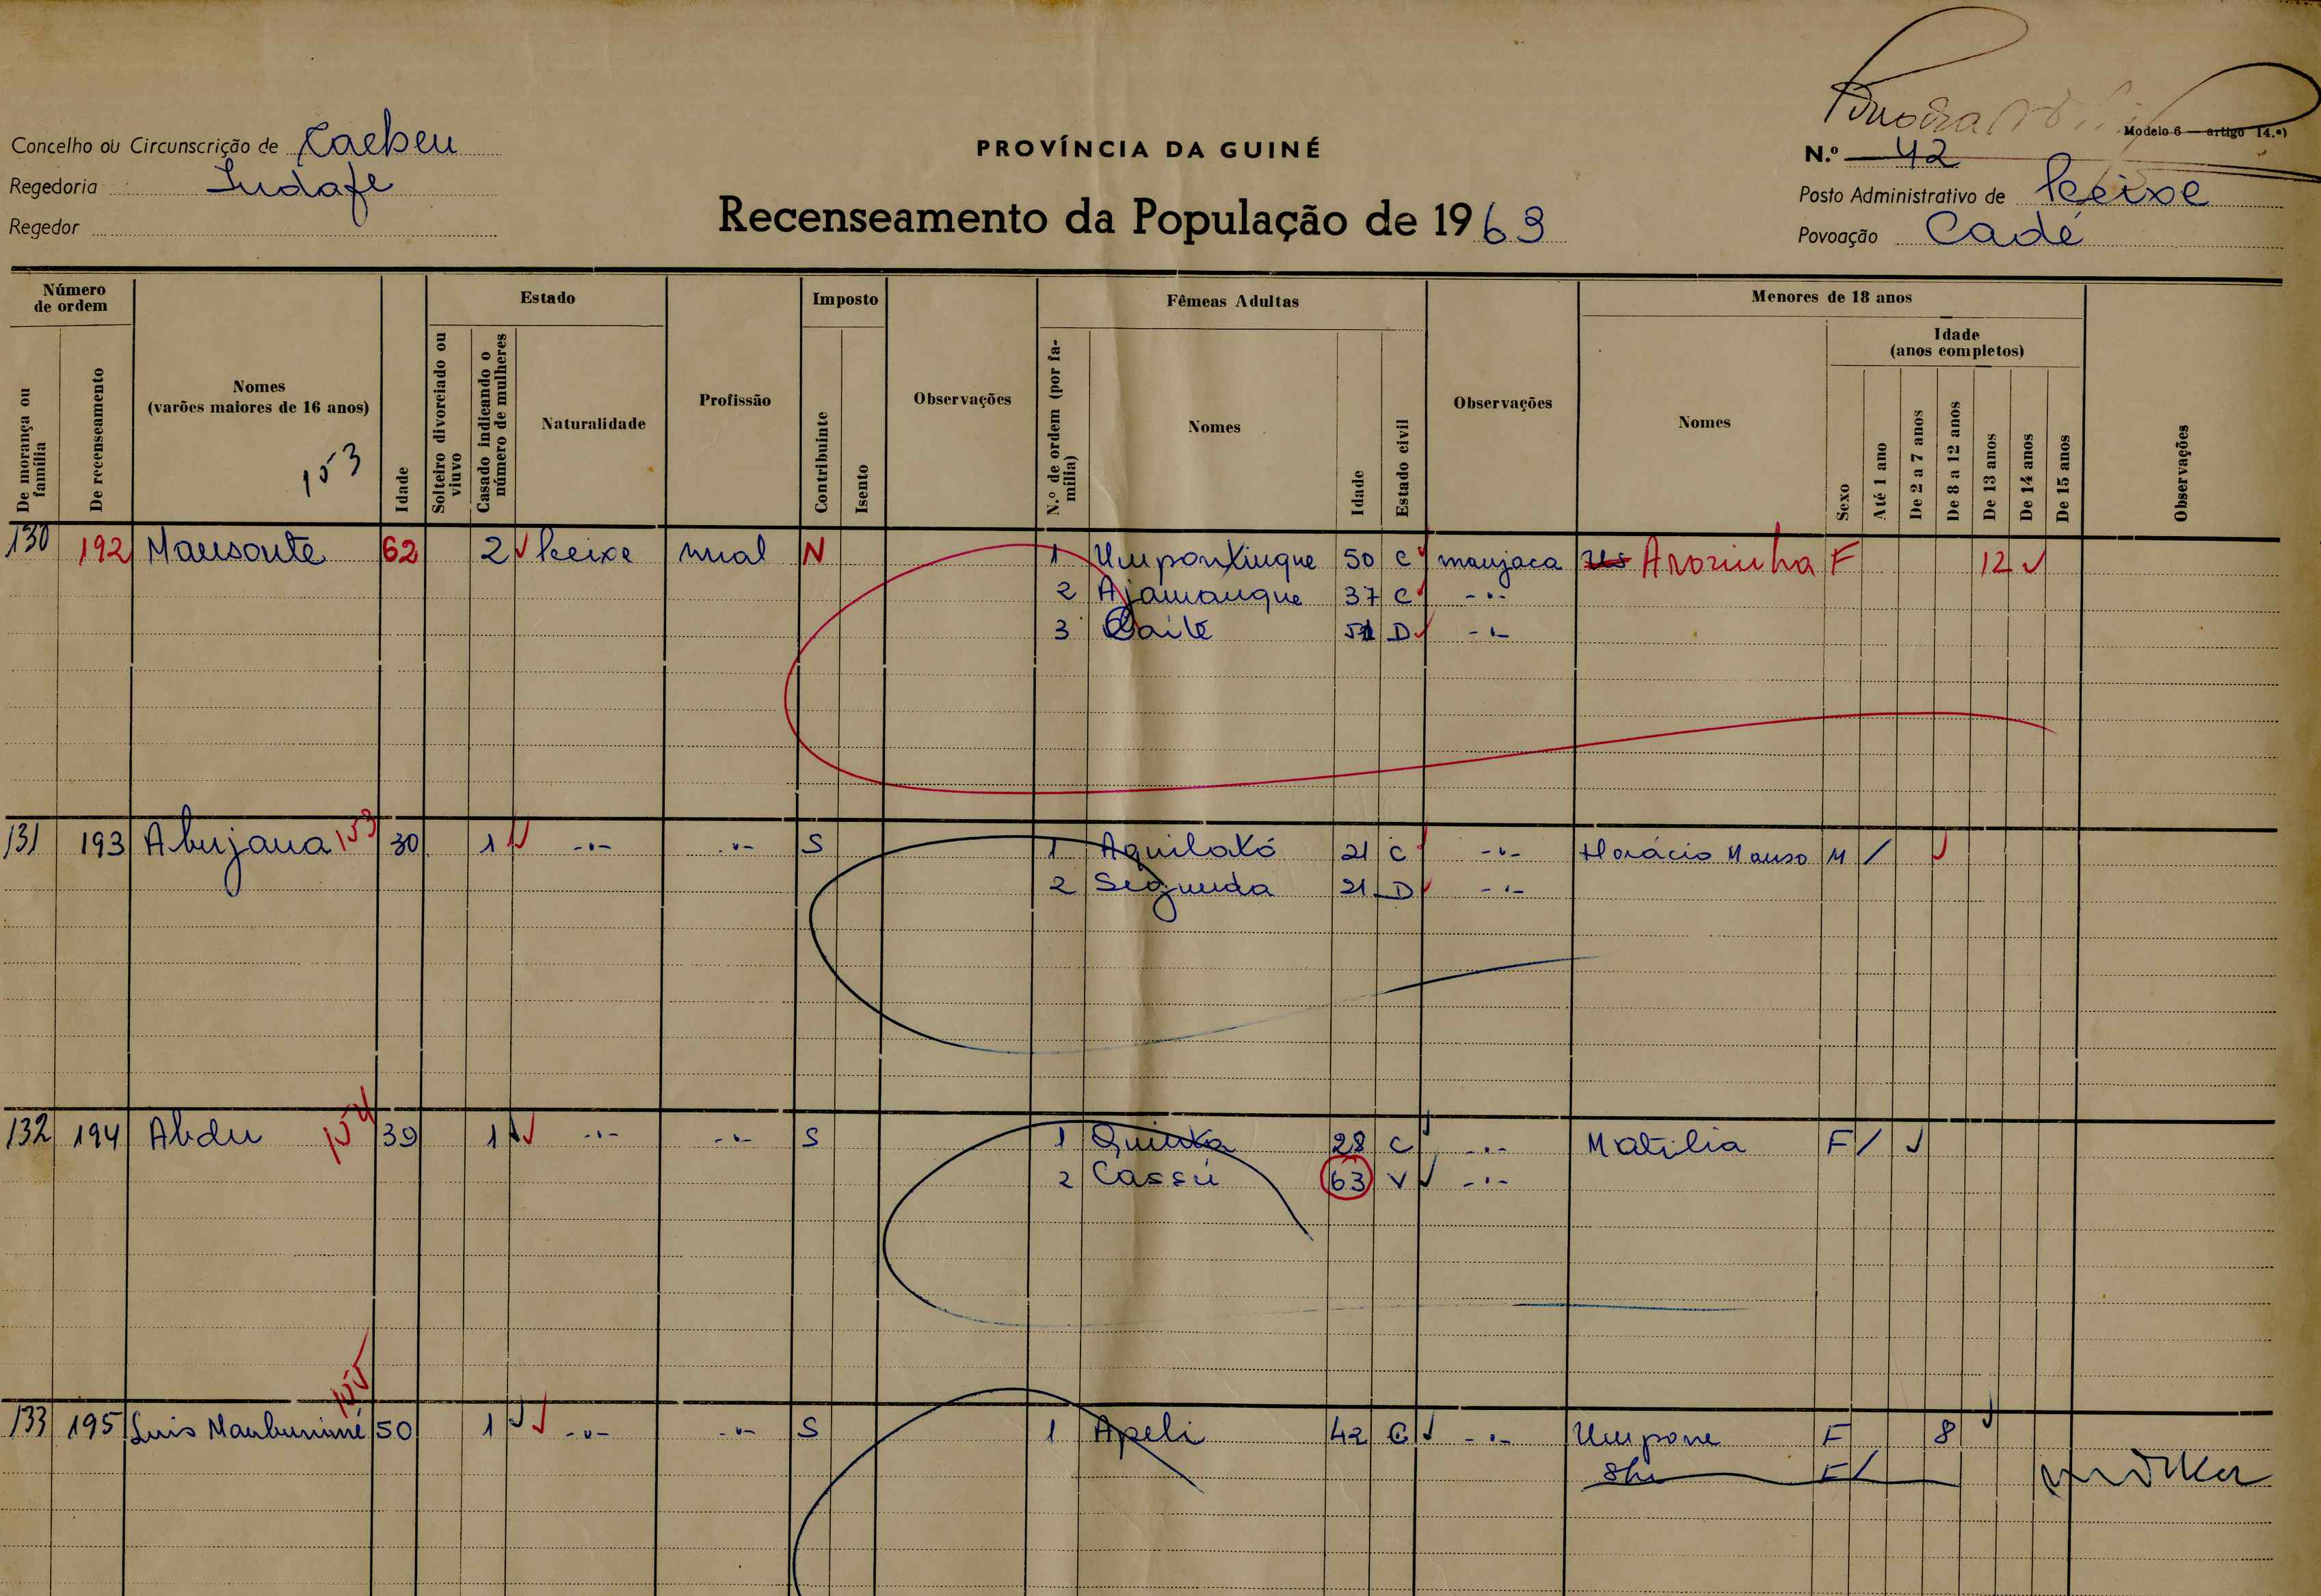 Modelo 6 — artigo 14.º)
Concelho ou Circunscrição de Caebeu
PROVÍNCIA DA GUINÉ
N.º 42
Regedoria Indafe
Posto Administrativo de
Recenseamento da População de 1963
Regedor
Povoação Cadé
Número de ordem
Estado
Imposto
Fêmeas Adultas
Menores de 18 anos
De morança ou família
De recenseamento
Nomes
(varões maiores de 16 anos)
153
Idade
Solteiro divorciado ou viuvo
Casado indicando o número de mulheres
Naturalidade
Profissão
Contribuinte
Isento
Observações
N.º de ordem (por família)
Nomes
Idade
Estado civil
Observações
Nomes
Sexo
Idade
(anos completos)
Até 1 ano
De 2 a 7 anos
De 8 a 12 anos
De 13 anos
De 14 anos
De 15 anos
Observações
130 192 Mausoute 62 2 N 1 50 C manjaca F 12
2 Ajamanque 37 C -"-
3 D -"-
131 193 Abujana 153 30 1 -"- -"- S 1 21 C -"- Horácio Manso M /
2 Segunda 21 D -"-
132 194 Abdu 154 39 1 -"- -"- S 1 Quinta 28 C -"- Matilia F /
2 Cassú 63 V -"-
133 195 Luis 155 50 1 -"- -"- S 1 Apeli 42 C -"- Umpone F 8
F /